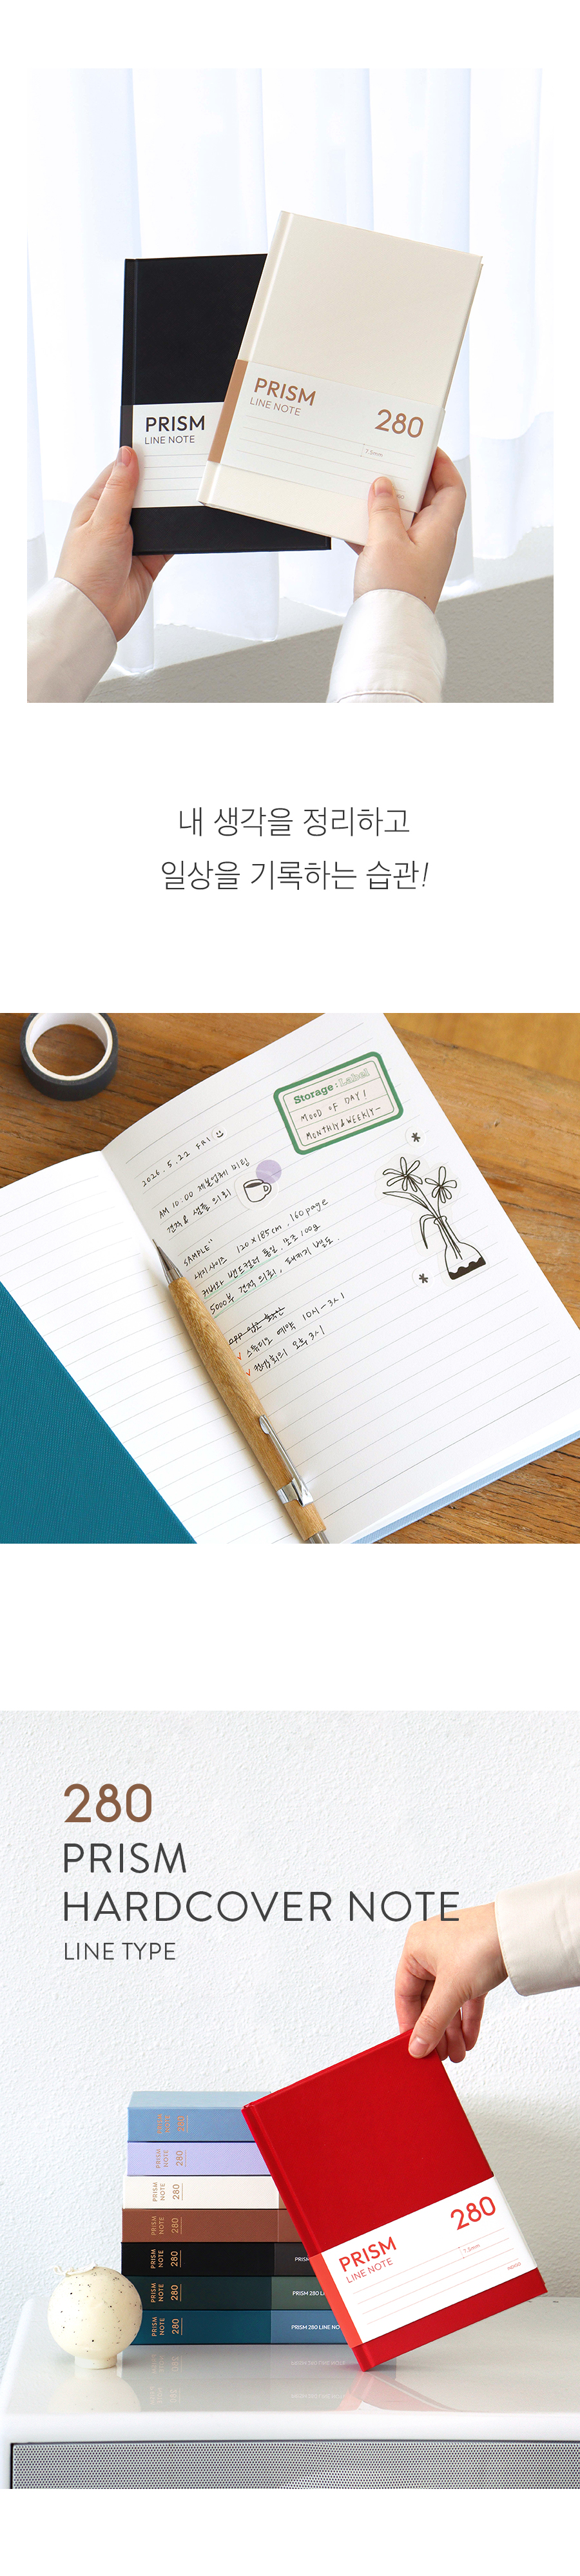 PRISM
LINE NOTE
PRISM
LINE NOTE
280
7.5mm
내 생각을 정리하고
일상을 기록하는 습관!
Storage : Label
MOOD OF DAY!
MONTHLY & WEEKLY-
2026. 5. 22 FRI
AM 10:00 제본업체 미팅
견적 & 샘플 의뢰
SAMPLE"
내지사이즈 120×185cm, 160page
커버와 밴드컬러 통일, 모조 100g
5000부 견적 의뢰, 패키지 별도.
스튜디오 예약 10시-3시
컨셉회의 오후 3시
280
PRISM
HARDCOVER NOTE
LINE TYPE
PRISM
NOTE
280
PRISM
NOTE
280
PRISM
NOTE
280
PRISM
NOTE
280
PRISM
NOTE
280
PRISM
NOTE
280
PRISM 280 LI
PRISM
NOTE
280
PRISM 280 LINE NO
PRISM
LINE NOTE
280
7.5mm